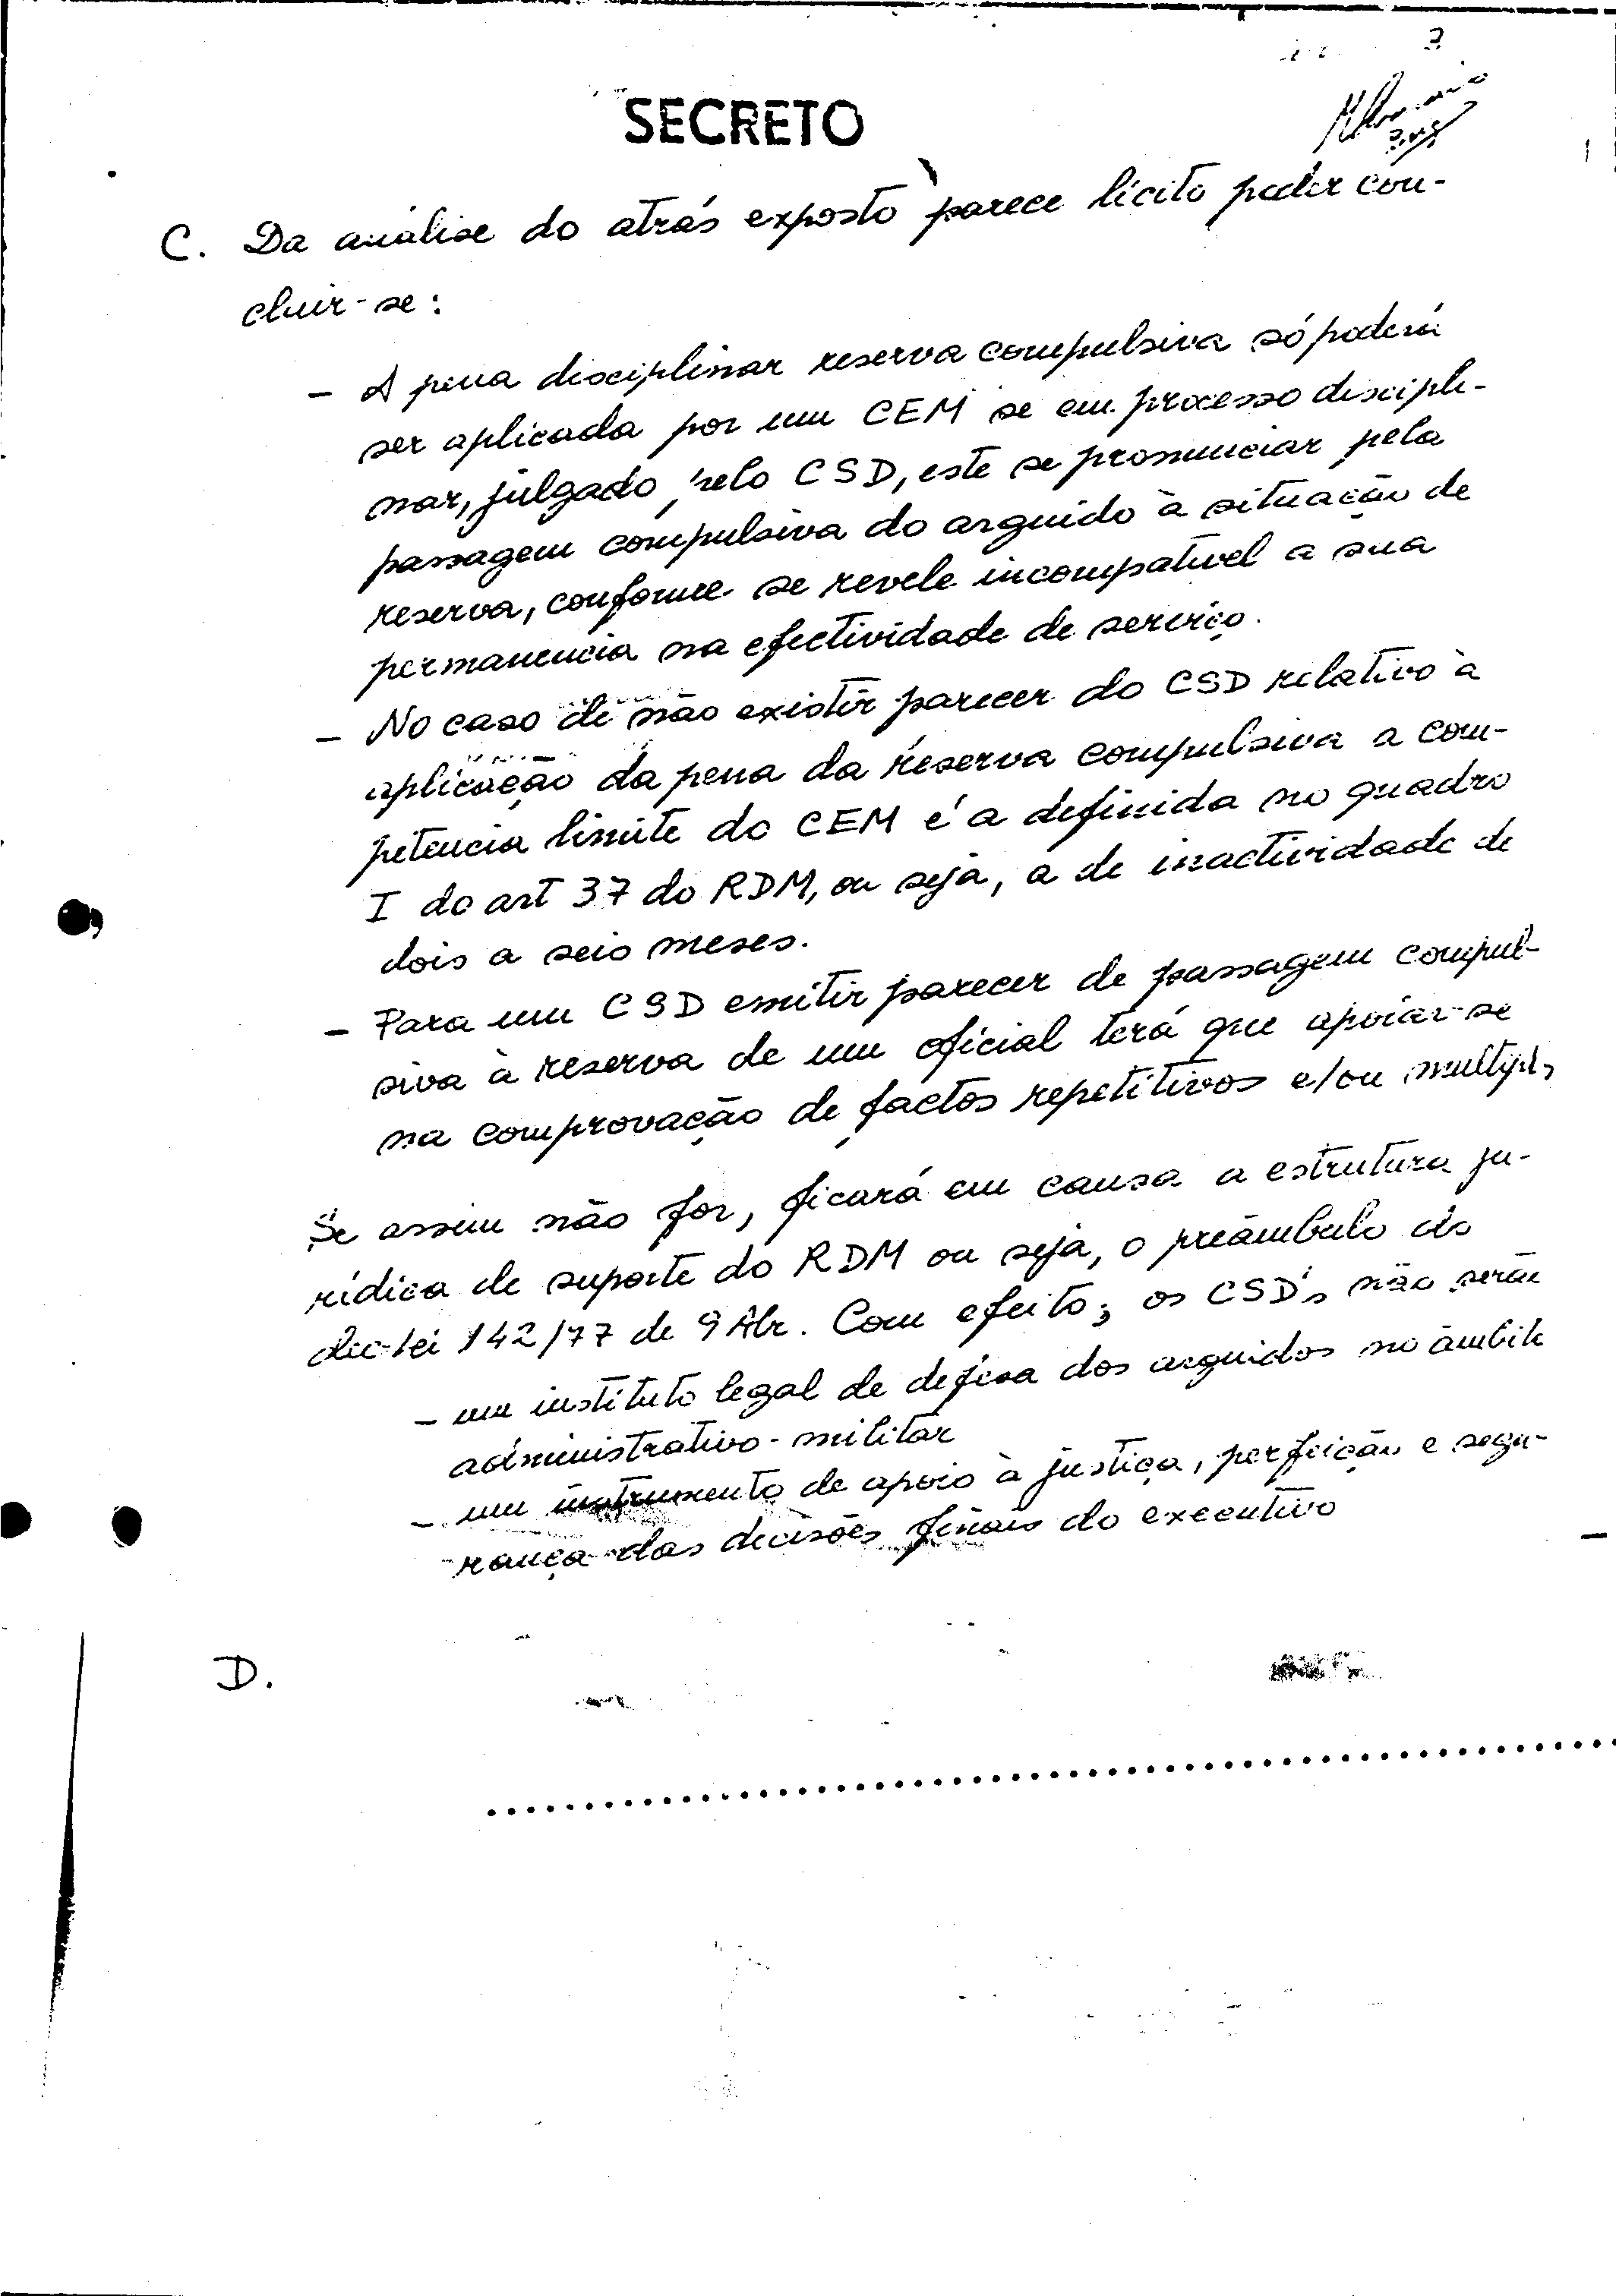 3
SECRETO
C. Da análise do atrás exposto parece lícito poder con-
cluir-se:
- A pena disciplinar reserva compulsiva só poderá
ser aplicada por um CEM se em processo discipli-
nar, julgado pelo CSD, este se pronunciar pela
passagem compulsiva do arguido à situação de
reserva, conforme se revele incompatível a sua
permanencia na efectividade de serviço.
- No caso de não existir parecer do CSD relativo à
aplicação da pena da reserva compulsiva a com-
petencia limite do CEM é a definida no quadro
I do art 37 do RDM, ou seja, a de inactividade de
dois a seis meses.
- Para um CSD emitir parecer de passagem compul-
siva à reserva de um oficial terá que apoiar-se
na comprovação de factos repetitivos e/ou multipl,
Se assim não for, ficará em causa a estrutura ju-
rídica de suporte do RDM ou seja, o preâmbulo do
dec-lei 142/77 de 9 Abr. Com efeito, os CSD's não serão
- um instituto legal de defesa dos arguidos no âmbito
administrativo-militar
- um instrumento de apoio à justiça, perfeição e segu-
rança das decisões finais do executivo
D.